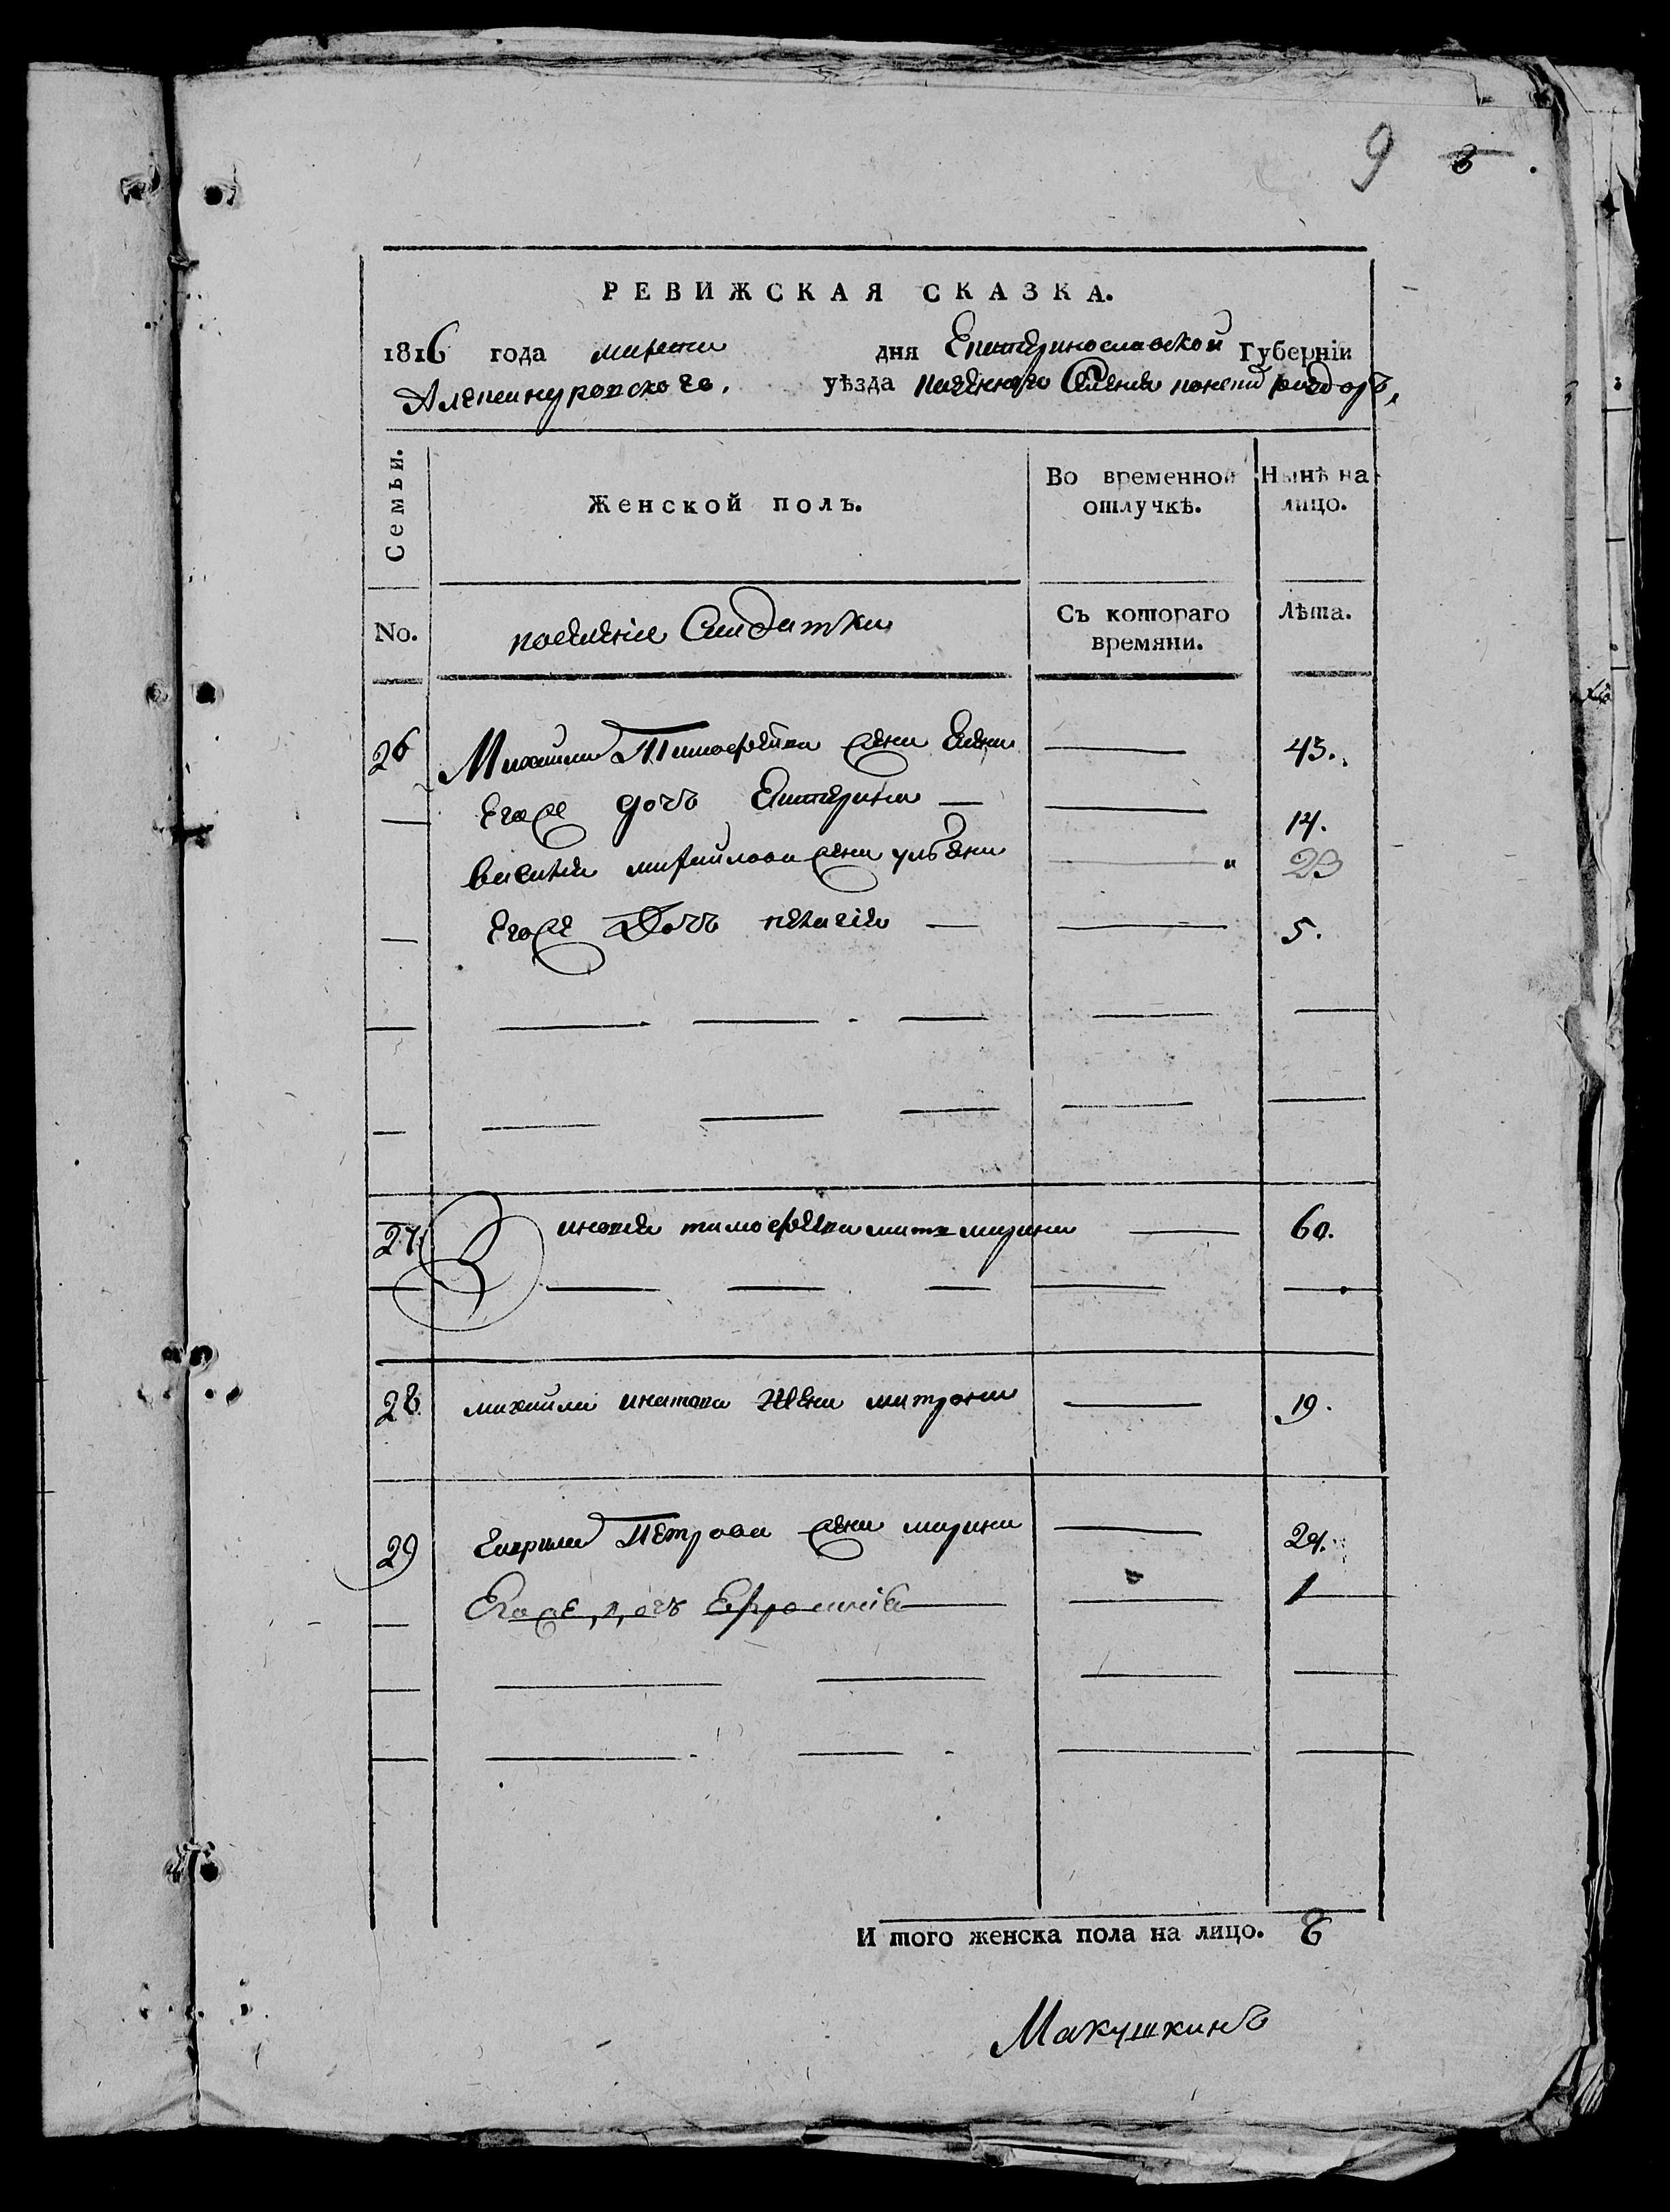 9 8
РЕВИЖСКАЯ СКАЗКА.
1816 года марта дня Екатеринославской Губерніи
Александровского. уѣзда казенного Селения
Семьи. Женской полъ. Во временной отлучкѣ. Нынѣ на лицо.
No. Съ котораго времяни. Лѣта.
26 Михаила Тимофеева жена Елена 45.
Егоже дочь Екатерина 14.
василия михайлова жена ульяна 23
Егоже Дочь пелагія 5.
27 тимофеева мать марина 60.
28 михаила игнатова жена матрона 19.
29 Гаврила Петрова жена марина 24.
Егоже дочь Ефросинія 1
И того женска пола на лицо. 8
Макушкинъ